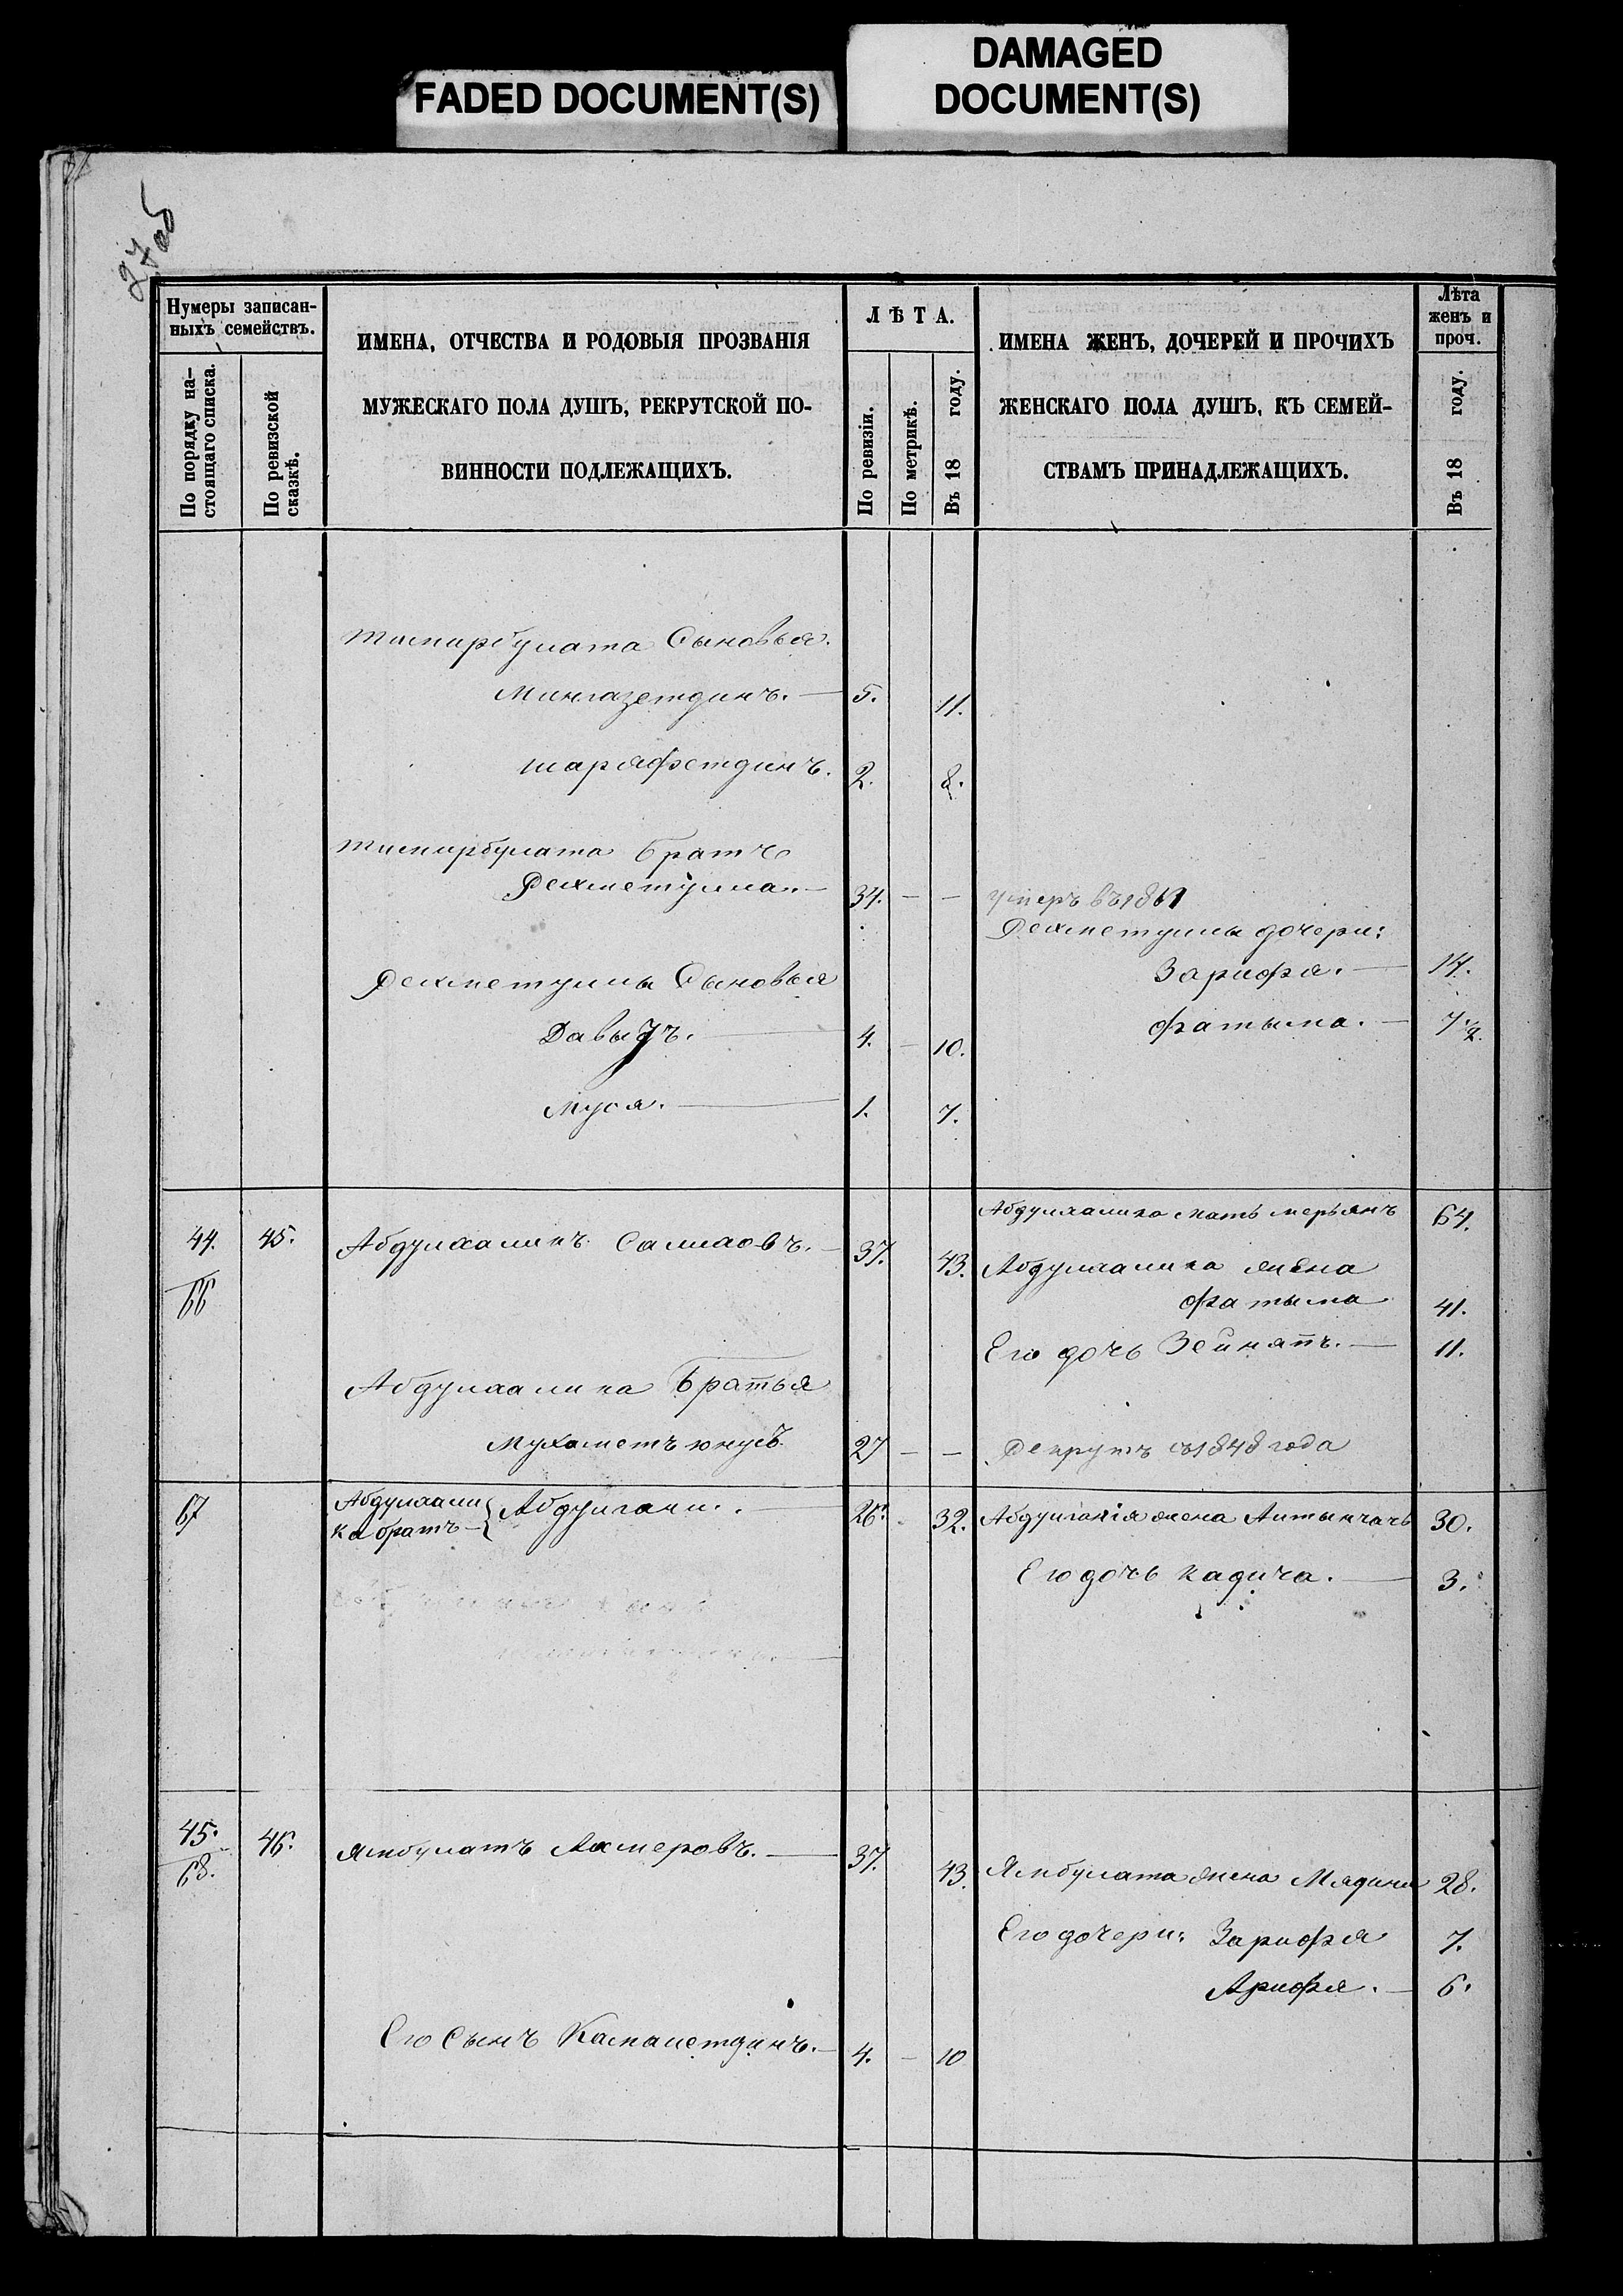 FADED DOCUMENT(S)
DAMAGED
DOCUMENT(S)
27 об
Нумеры записан-
ныхъ семействъ.
По порядку на-
стоящаго списка.
По ревизской
сказкѣ.
ИМЕНА, ОТЧЕСТВА И РОДОВЫЯ ПРОЗВАНІЯ
МУЖЕСКАГО ПОЛА ДУШЪ, РЕКРУТСКОЙ ПО-
ВИННОСТИ ПОДЛЕЖАЩИХЪ.
ЛѢТА.
По ревизіи.
По метрикѣ.
Въ 18 году.
ИМЕНА ЖЕНЪ, ДОЧЕРЕЙ И ПРОЧИХЪ
ЖЕНСКАГО ПОЛА ДУШЪ, КЪ СЕМЕЙ-
СТВАМЪ ПРИНАДЛЕЖАЩИХЪ.
Лѣта
женъ и
проч.
Въ 18 году.
Тимирбулата Сыновья.
Мингазетдинъ. — 5. 11.
Шаряфетдинъ. 2. 8.
Тимирбулата братъ
Рехметулла. — 34. — — умеръ въ 1861
Рехметуллы дочери:
Зарифа. — 14.
Рехметуллы Сыновья
Фатыма. — 7.
Давыдъ. — 4. — 10.
Муся. — 1. 7.
Абдулхалика мать Мерьямъ 64.
44. 45. Абдулхаликъ Салиховъ. — 37. 43. Абдулхалика жена
66
Фатыма 41.
Его дочь Зейнапъ. — 11.
Абдулхалика братья
Мухаметъ юнусъ 27 — — Рекрутъ съ 1848 года
67 Абдулхали
ка братъ — { Абдулгани. — 26. 32. Абдулганія жена Алтынчачь 30.
Его дочь Кадича. — 3.
45. 46. Ямбулатъ Ахмеровъ. — 37. 43. Ямбулата жена Мядина 28.
68.
Его дочери: Зарифя 7.
Арифя. — 6.
Его Сынъ Камалетдинъ. — 4. — 10